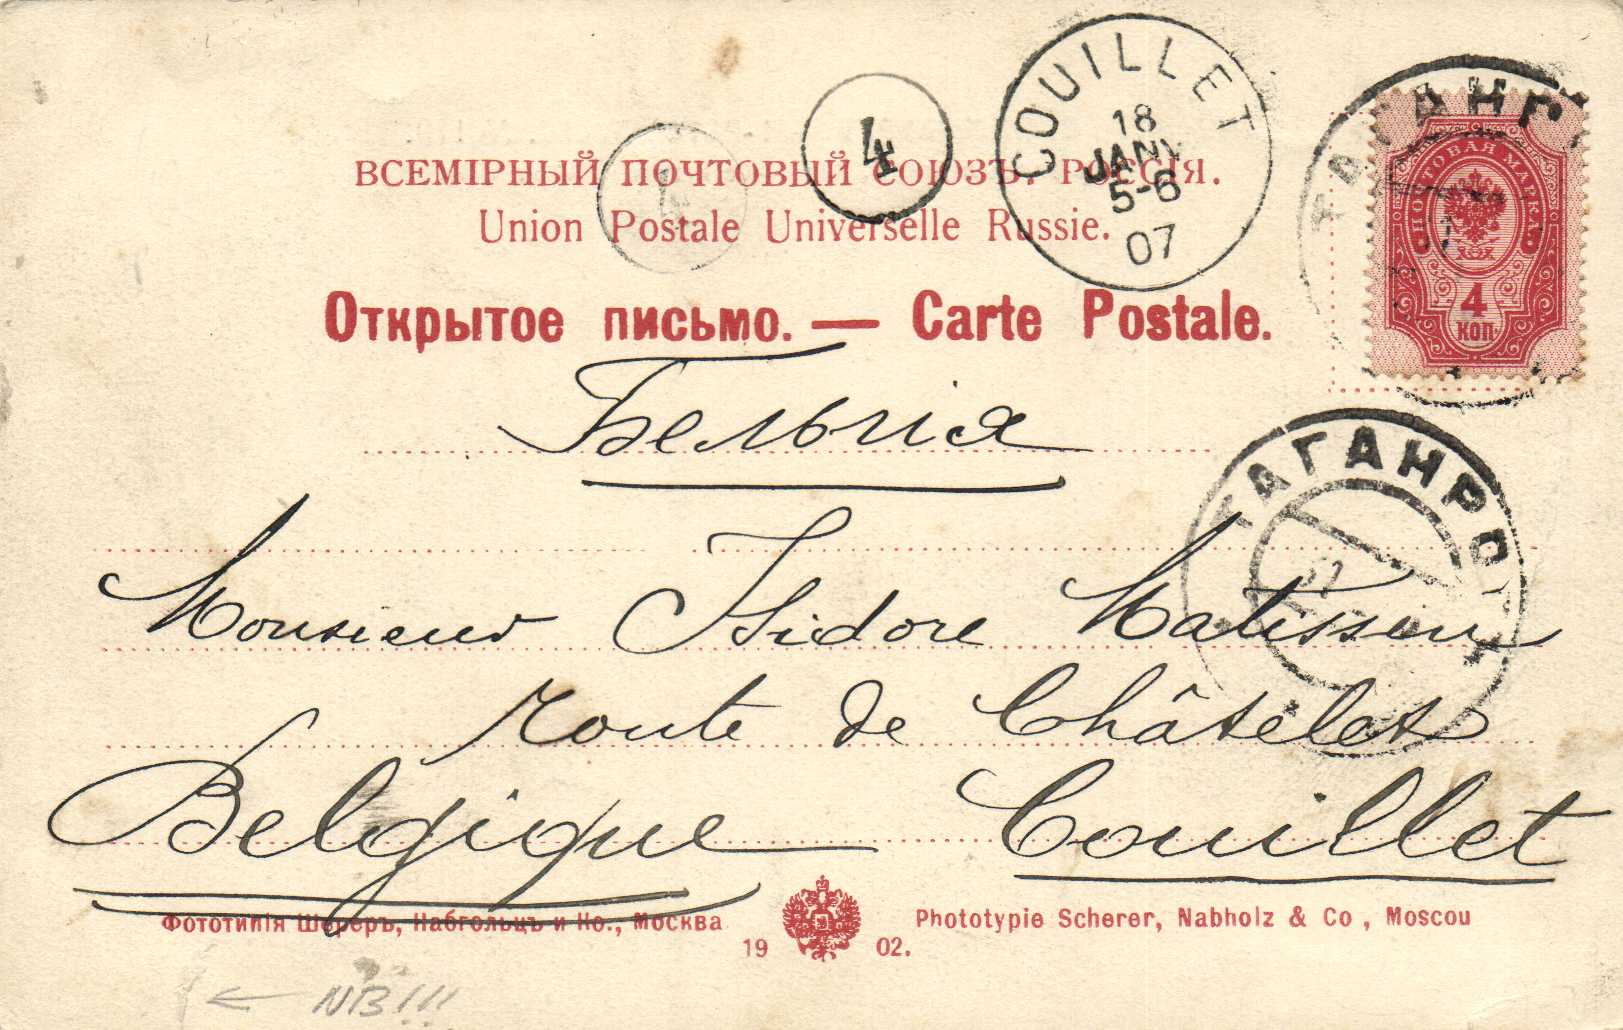 ВСЕМІРНЫЙ ПОЧТОВЫЙ СОЮЗЪ. РОССІЯ.
Union Postale Universelle Russie.
Открытое письмо. — Carte Postale.
4
4
COUILLET
18
JANV
5-6
07
ТАГАНРО
ПОЧТОВАЯ МАРКА
4
КОП
Бельгія
ТАГАНРО
Monsieur Isidore
Route de Châtelet
Belgique Couillet
Фототипія Шереръ, Набгольцъ и Ко., Москва
1902.
Phototypie Scherer, Nabholz & Co, Moscou
← NB!!!